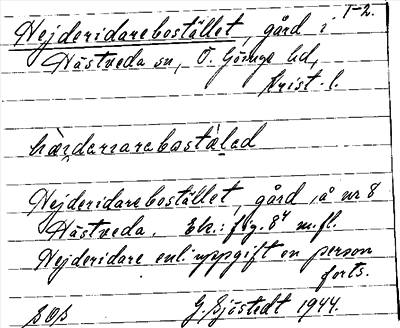 1-2.
Hejderidarebostället, gård i
Hästveda sn, Ö. Göinge hd,
Krist. l.
Hejderidarebostället, gård, å nr 8
Hästveda. Ek.: fig. 8⁴ m.fl.
Hejderidare enl. uppgift en person
forts.
G. Sjöstedt 1944.